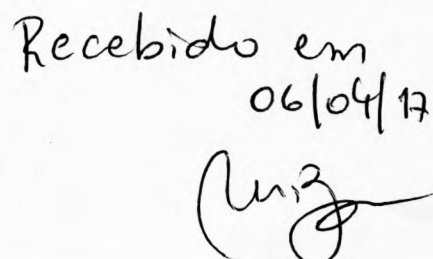 Recebido em
06/04/17
Luiz